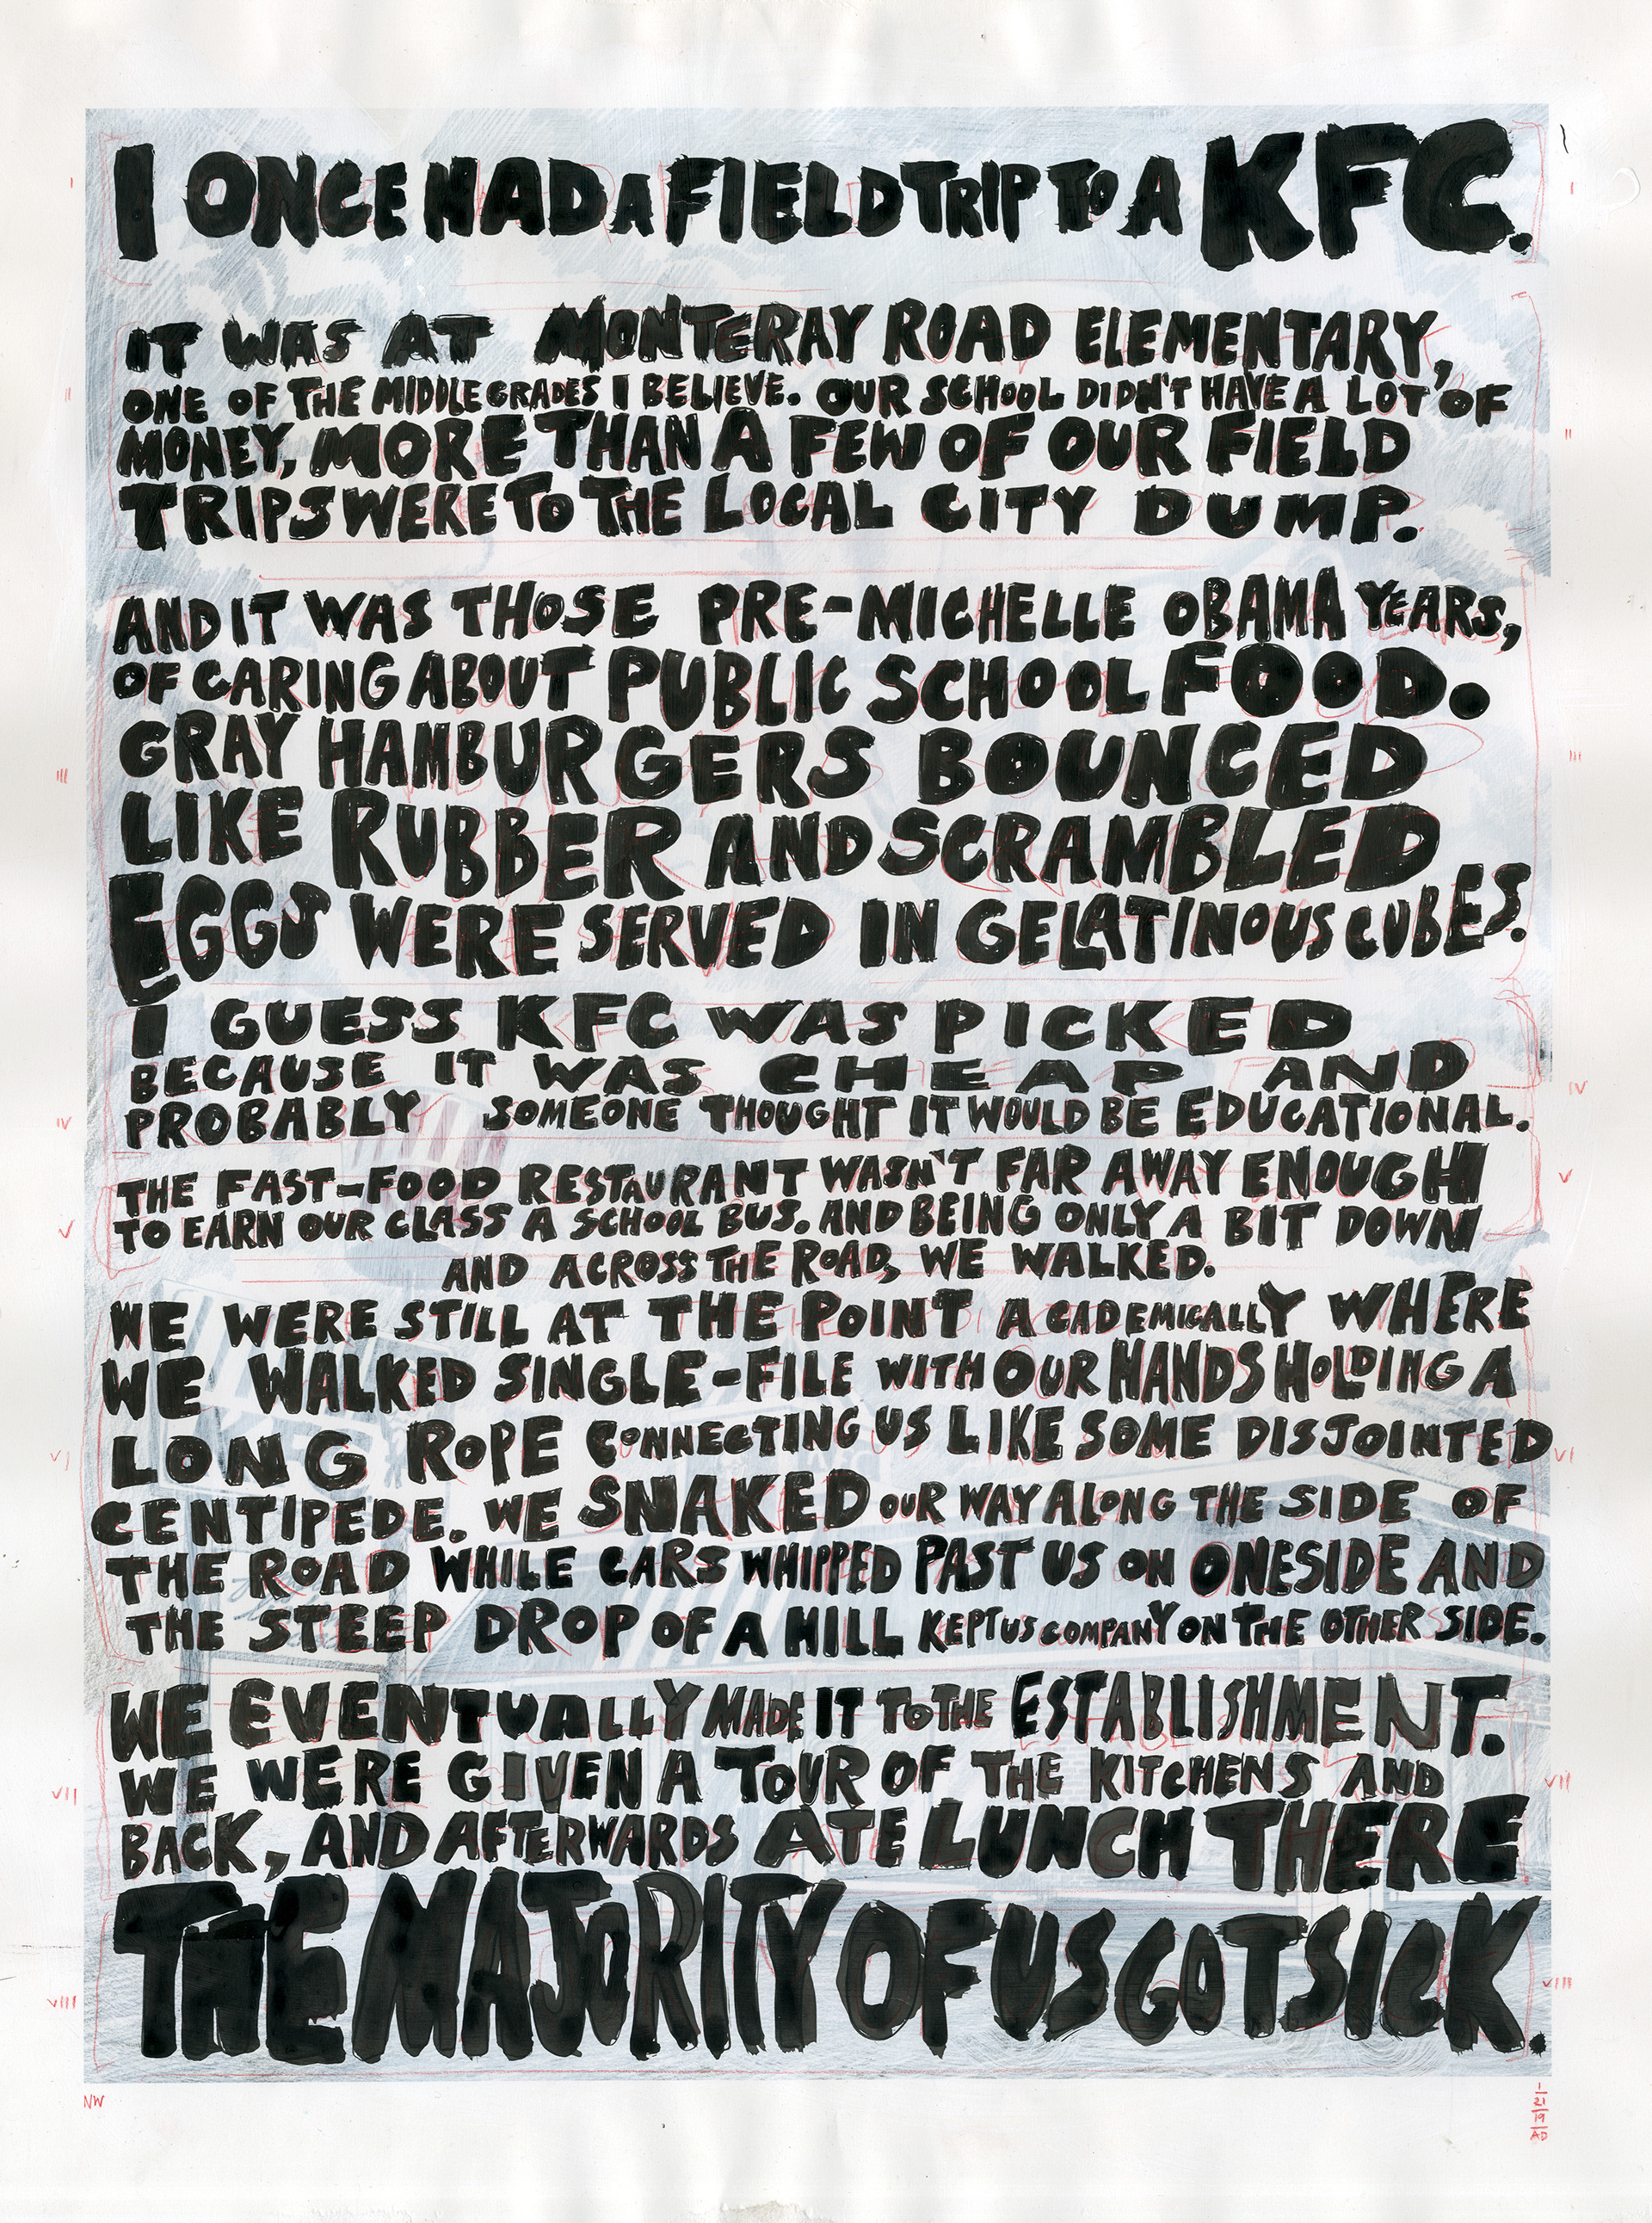 I ONCE HAD A FIELD TRIP TO A KFC.
I
I
IT WAS AT MONTERAY ROAD ELEMENTARY,
ONE OF THE MIDDLE GRADES I BELIEVE. OUR SCHOOL DIDN'T HAVE A LOT OF
II
MONEY, MORE THAN A FEW OF OUR FIELD
II
TRIPS WERE TO THE LOCAL CITY DUMP.
AND IT WAS THOSE PRE-MICHELLE OBAMA YEARS,
OF CARING ABOUT PUBLIC SCHOOL FOOD.
GRAY HAMBURGERS BOUNCED
III
III
LIKE RUBBER AND SCRAMBLED
EGGS WERE SERVED IN GELATINOUS CUBES.
I GUESS KFC WAS PICKED
BECAUSE IT WAS CHEAP AND
IV
PROBABLY SOMEONE THOUGHT IT WOULD BE EDUCATIONAL.
IV
THE FAST-FOOD RESTAURANT WASN'T FAR AWAY ENOUGH
V
TO EARN OUR CLASS A SCHOOL BUS. AND BEING ONLY A BIT DOWN
V
AND ACROSS THE ROAD, WE WALKED.
WE WERE STILL AT THE POINT ACADEMICALLY WHERE
WE WALKED SINGLE-FILE WITH OUR HANDS HOLDING A
LONG ROPE CONNECTING US LIKE SOME DISJOINTED
VI
VI
CENTIPEDE. WE SNAKED OUR WAY ALONG THE SIDE OF
THE ROAD WHILE CARS WHIPPED PAST US ON ONE SIDE AND
THE STEEP DROP OF A HILL KEPT US COMPANY ON THE OTHER SIDE.
WE EVENTUALLY MADE IT TO THE ESTABLISHMENT.
WE WERE GIVEN A TOUR OF THE KITCHENS AND
VII
VII
BACK, AND AFTERWARDS ATE LUNCH THERE
THE MAJORITY OF US GOT SICK.
VIII
VIII
NW
1
21
19
AD